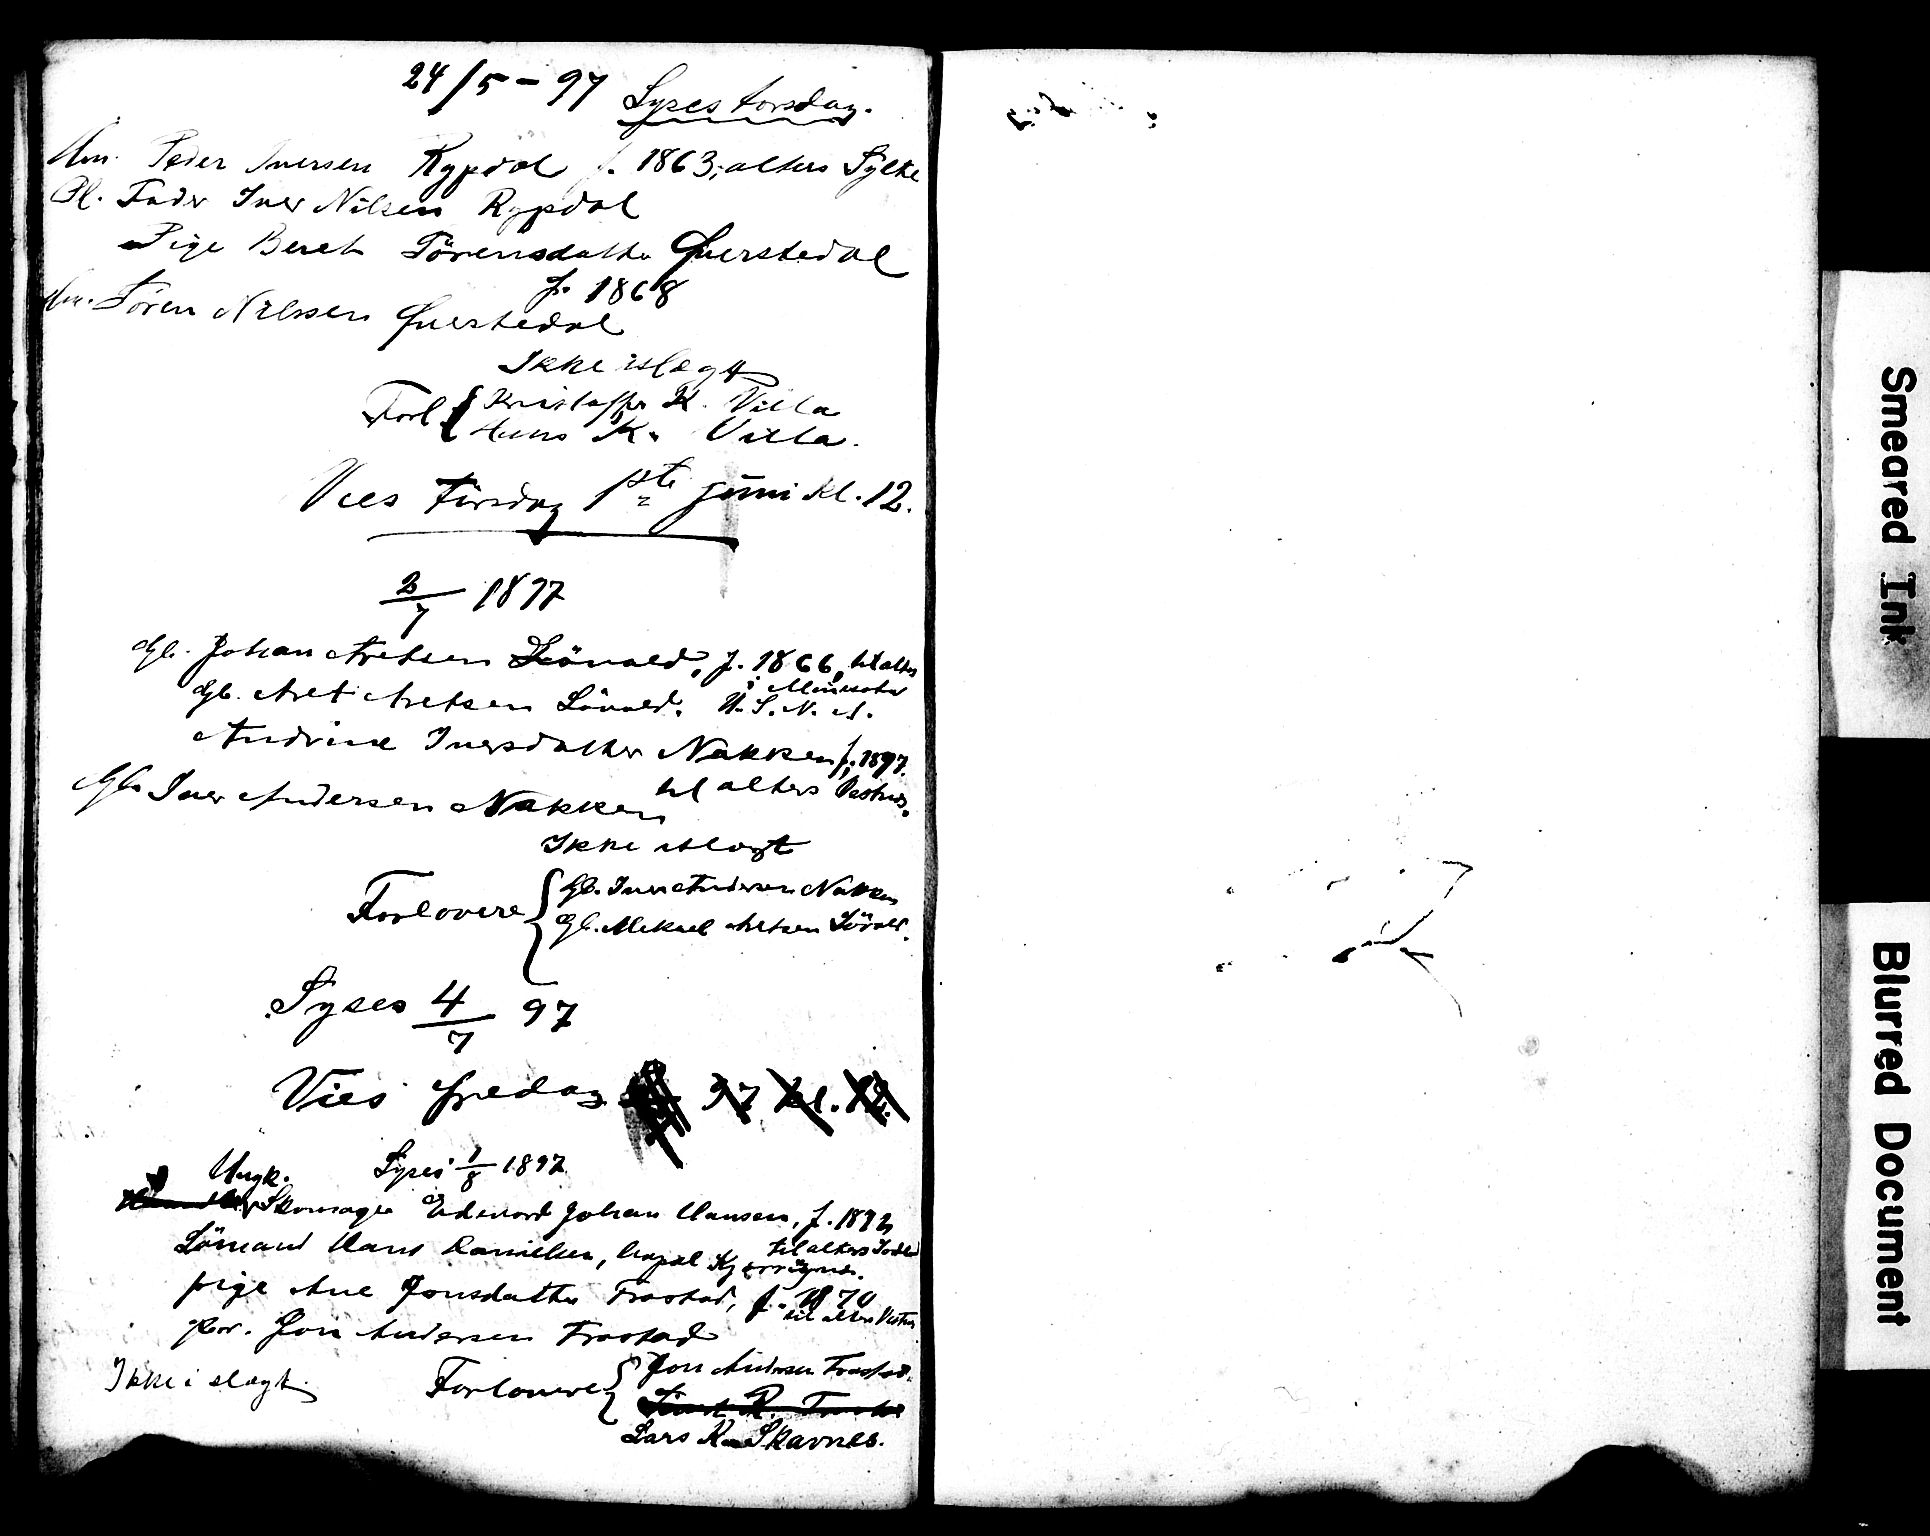 24/5 - 97 Lyses torsdag.
Um. Peder Iversen Rypdal f. 1863; alters Sylte
Pl. Fader Iver Nilsen Rypdal
Pige Beret Sörensdatter Øverstedal
f. 1868
Gm. Sören Nilssen Øverstedal
Ikke islægt
Forl { Kristoffer K. Villa
Hans K. Villa.
Vies Tirsdag 1ste juni kl. 12.
2/7 1897
Gb. Johan Aretsen Lövold, f. 1866, til alters
Minesota
Gb. Aret Aretsen Lövold. U.S.N.A.
Andrine Iversdatter Nakken f. 1897.
til alters Vestnes.
Gb. Iver Andersen Nakken
Ikke islægt
Forlovere { Gb. Iver Andersen Nakken
Gb. Mekael Aretsen Lövold.
Lyses 4/7 97
Vies fredag 9/7 kl.
Ungk. Lyses 1/8 1897
Skomager Edevard Johan Hansen, f. 1872
til alters
Lömand Hans Danielsen, Kjerringnes.
pige Ane Jonsdatter Frostad, f. 1870
til alters Vestnes
Jon Andersen Frostad
Ikke i slægt. Forlovere { Jon Andersen Frostad.
Lars K. Skavnes.
Smeared Ink
Blurred Document